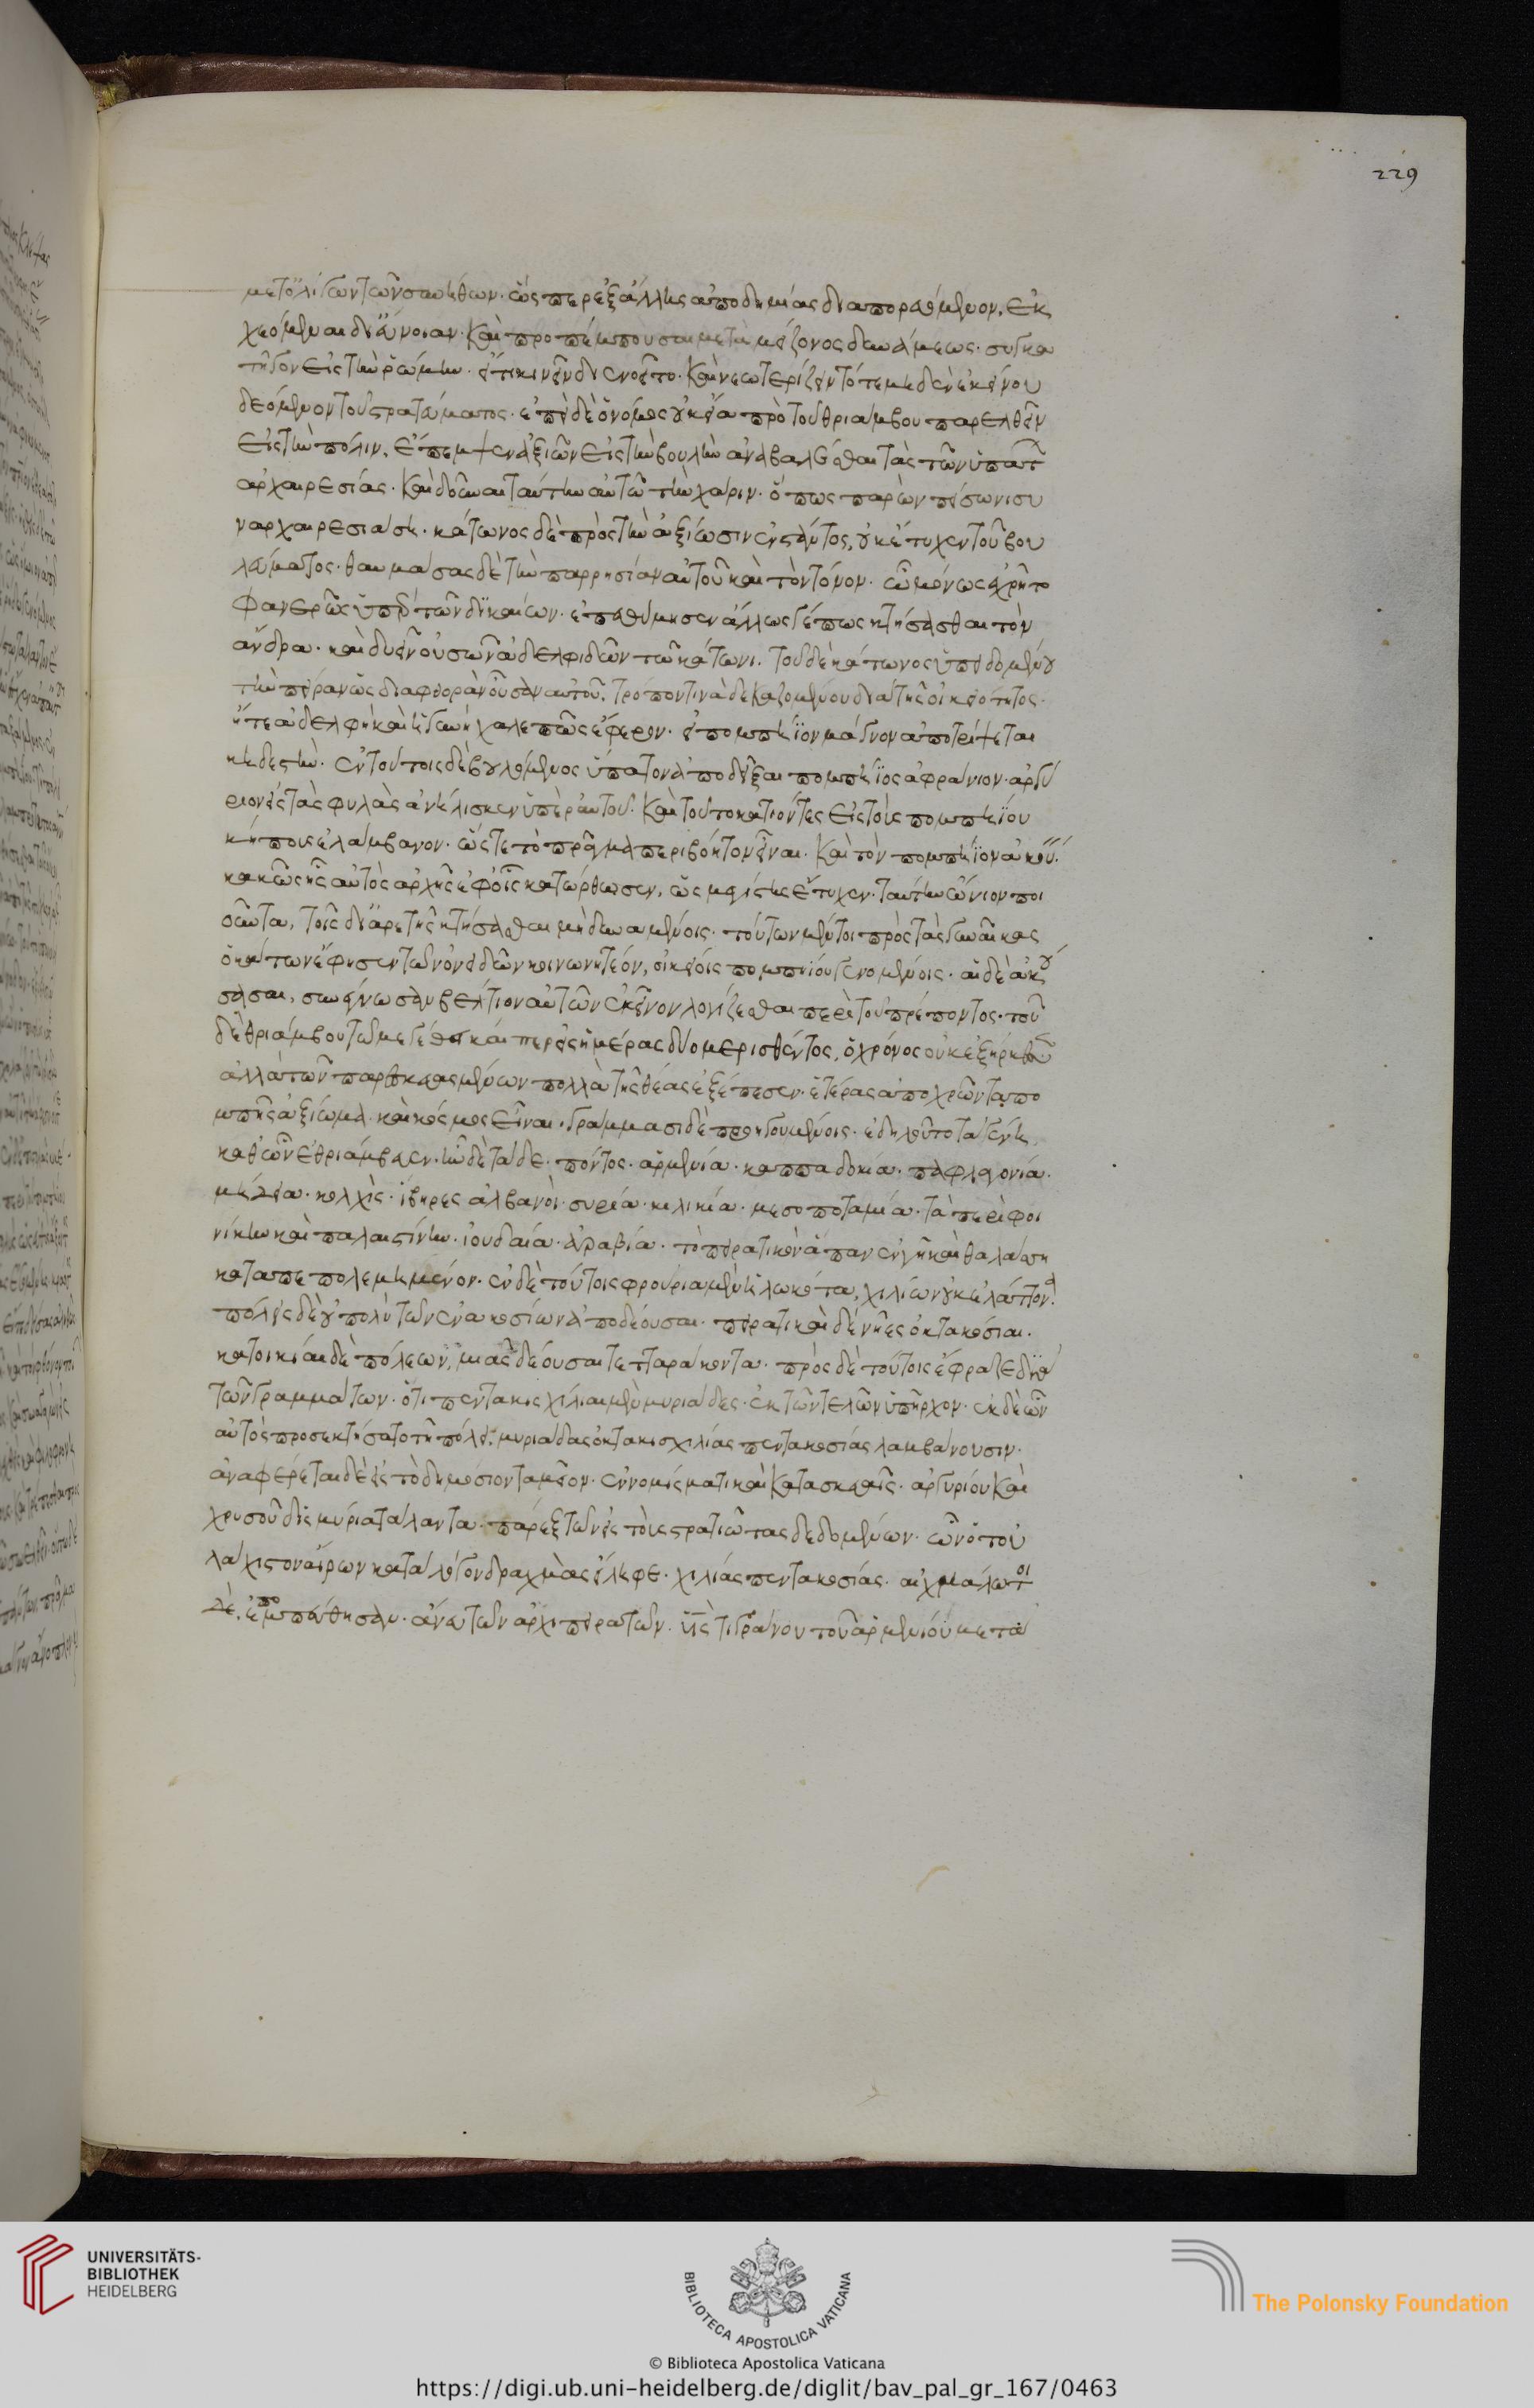 229
μετ' ὀλίγων τῶν συνήθων. ὥσπερ ἐξ ἄλλης ἀποδημίας διαπορευόμενον. ἐκ
χεόμεναι δι' εὔνοιαν. καὶ προπέμπουσαι μετὰ μείζονος δυνάμεως. συγκα
τῆγον εἰς τὴν ῥώμην. εἴ τι κινεῖν διενοεῖτο. καὶ νεωτερίζειν τότε μηδὲν ἐκείνου
δεόμενον τοῦ στρατεύματος. ἐπεὶ δὲ ὁ νόμος οὐκ εἴα πρὸ τοῦ θριάμβου παρελθεῖν
εἰς τὴν πόλιν, ἔπεμψεν ἀξιῶν εἰς τὴν βουλὴν ἀναβαλέσθαι τὰς τῶν ὑπάτ
ἀρχαιρεσίας. καὶ δοῦναι ταύτην αὐτῶ τὴν χάριν. ὅπως παρὼν πείσωνι συ
ναρχαιρεσιάση. κάτωνος δὲ πρὸς τὴν ἀξίωσιν ἐνστάντος, οὐκ ἔτυχεν τοῦ βου
λεύματος. θαυμάσας δὲ τὴν παρρησίαν αὐτοῦ καὶ τὸν τόνον. ὧ μόνως ἐχρῆτο
φανερῶς ὑπὲρ τῶν δικαίων. ἐπεθύμησεν ἄλλως γέ πως κτήσασθαι τὸν
ἄνδρα. καὶ δυεῖν οὐσῶν ἀδελφιδῶν τῶ κάτωνι. τοῦ δὲ κάτωνος ὑπειδομένου
τὴν πεῖραν ὡς διαφθορὰν οὖσαν αὐτοῦ. τρόπον τινὰ δεκαζομένου διὰ τῆς οἰκειότητος.
ἥ τε ἀδελφὴ καὶ ἡ γυνὴ χαλεπῶς ἔφερον. εἰ πομπήϊον μάγνον ἀποτρίψεται
κηδεστήν. ἐν τούτοις δὲ βουλόμενος ὕπατον ἀποδεῖξαι πομπήϊος ἀφράνιον. ἀργύ
ριον εἰς τὰς φυλὰς ἀνήλισκεν ὑπὲρ αὐτοῦ. καὶ τοῦτο κατιόντες εἰς τοὺς πομπηίου
κήπους ἐλάμβανον. ὥστε τὸ πρᾶγμα περιβόητον εἶναι. καὶ τὸν πομπήϊον ἀκού.
κακῶς ἧς αὐτὸς ἀρχῆς ἐφ' οἷς κατώρθωσεν, ὡς μεγίστης ἔτυχεν. ταύτην ὤνιον ποι
οῦντα, τοῖς δι' ἀρετῆς κτήσασθαι μὴ δυναμένοις. τούτων μέντοι πρὸς τὰς γυναῖκας
ὁ κάτων ἔφησεν τῶν ὀνειδῶν κοινωνητέον, οἰκείοις πομπηίου γενομένοις. αἱ δὲ ἀκού
σασαι, συνέγνωσαν βέλτιον αὐτῶν ἐκεῖνον λογίζεσθαι περὶ τοῦ πρέποντος. τοῦ
δὲ θριάμβου τῶ μεγέθει καίπερ εἰς ἡμέρας δύο μερισθέντος, ὁ χρόνος οὐκ ἐξήρκεσεν
ἀλλὰ τῶν παρεσκευασμένων πολλὰ τῆς θέας ἐξέπεσεν. ἑτέρας ἀποχρῶντα πο
μπῆς ἀξίωμα. καὶ κόσμος εἶναι. γράμμασι δὲ προηγουμένοις. ἐδηλοῦτο τὰ γένη,
καθ' ὧν ἐθριάμβευεν. ἦν δὲ τάδε. πόντος. ἀρμενία. καππαδοκία. παφλαγονία.
μηδεία. κολχὶς. ἴβηρες ἀλβανοὶ. συρία. κιλικία. μεσοποταμία. τὰ περὶ φοι
νίκην καὶ παλαιστίνην. ἰουδαία. ἀραβία. τὸ πειρατικὸν ἅπαν ἐν γῆ καὶ θαλάσση
καταπεπολεμημένον. ἐν δὲ τούτοις φρούρια μὲν ἡλωκότα, χιλίων οὐκ ἐλάττονα.
πόλεις δὲ οὐ πολὺ τῶν ἐνακοσίων ἀποδέουσαι. πειρατικαὶ δὲ νῆες ὀκτακόσιαι.
κατοικίαι δὲ πόλεων, μιᾶς δέουσαι τετταράκοντα. πρὸς δὲ τούτοις ἔφραζε διὰ
τῶν γραμμάτων. ὅτι πεντακισχίλιαι μὲν μυριάδες. ἐκ τῶν τελῶν ὑπῆρχον. ἐκ δὲ ὧν
αὐτὸς προσεκτήσατο τῆ πόλει. μυριάδας ὀκτακισχιλίας πεντακοσίας λαμβάνουσιν.
ἀναφέρεται δὲ εἰς τὸ δημόσιον ταμεῖον. ἐν νομίσματι καὶ κατασκευαῖς. ἀργυρίου καὶ
χρυσοῦ δισμύρια τάλαντα. πάρεξ τῶν εἰς τοὺς στρατιώτας δεδομένων. ὧν ὁ τοὐ
λάχιστον αἴρων κατὰ λόγον δραχμὰς εἴληφε. χιλίας πεντακοσίας. αἰχμάλωτοι
δὲ, ἐπομπεύθησαν. ἄνευ τῶν ἀρχιπειρατῶν. υἱὸς τιγράνου τοῦ ἀρμενίου μετὰ
UNIVERSITÄTS-
BIBLIOTHEK
HEIDELBERG
BIBLIOTECA APOSTOLICA VATICANA
The Polonsky Foundation
© Biblioteca Apostolica Vaticana
https://digi.ub.uni-heidelberg.de/diglit/bav_pal_gr_167/0463